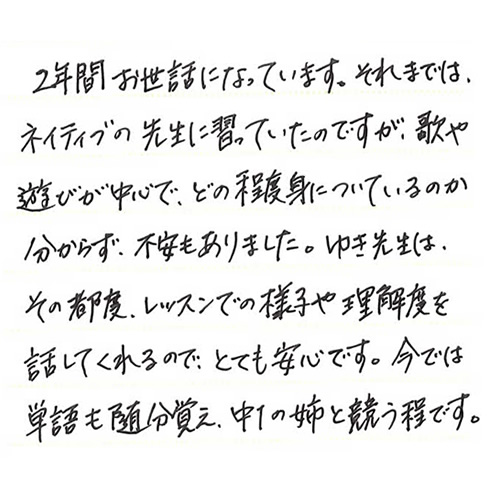 2年間お世話になっています。それまでは、
ネイティブの先生に習っていたのですが、歌や
遊びが中心で、どの程度身についているのか
分からず、不安もありました。ゆき先生は、
その都度、レッスンでの様子や理解度を
話してくれるので、とても安心です。今では
単語も随分覚え、中1の姉と競う程です。